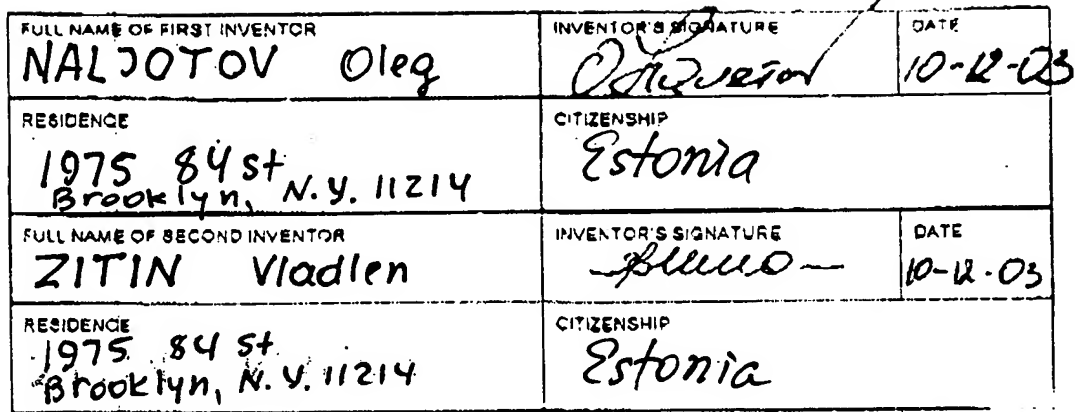 FULL NAME OF FIRST INVENTOR
NALJOTOV Oleg
INVENTOR'S SIGNATURE
DATE
10-12-03
RESIDENCE
1975 84 St
Brooklyn, N.Y. 11214
CITIZENSHIP
Estonia
FULL NAME OF SECOND INVENTOR
ZITIN Vladlen
INVENTOR'S SIGNATURE
DATE
10-12-03
RESIDENCE
1975 84 St
Brooklyn, N.Y. 11214
CITIZENSHIP
Estonia